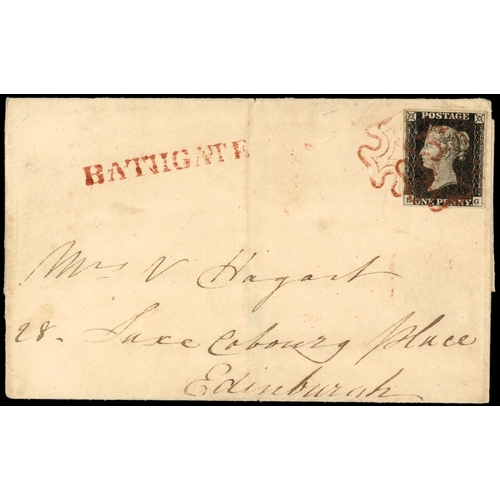 BATHGATE
POSTAGE
ONE PENNY
G
Mrs V Hagart
28. Saxe Cobourg place
Edinburgh